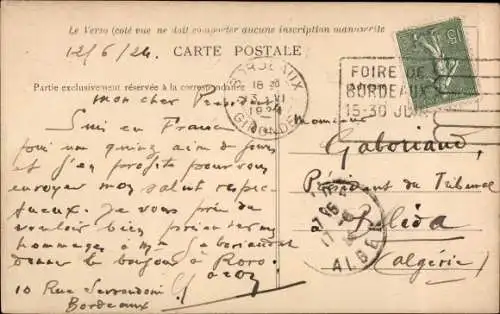 Le Verso (coté vue ne doit comporter aucune inscription manuscrite
12/6/24
CARTE POSTALE
Partie exclusivement réservée à la correspondance
BORDEAUX
18 30
13 VI
1924
GIRONDE
FOIRE DE
BORDEAUX
15-30 JUIN
15
mon cher Président
Suis en France
pour une quinzaine de jours
et j'en profite pour vous
envoyer mon salut respec-
tueux. Je vous prie de
vouloir bien présenter mes
hommages à Me Gaboriaud
donner le bonjour à Roro.
10 Rue Servandoni
Bordeaux
Monsieur
Gaboriaud
Président du Tribunal
Blida
(Algérie)
ALGER